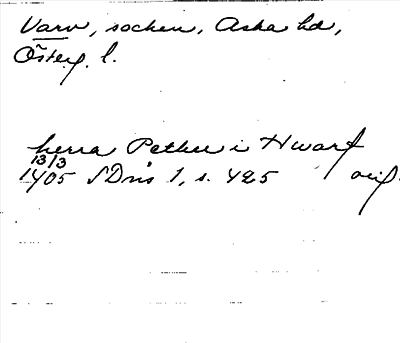 Varv, socken, Aska hd,
Österg. l.
herra Pether i Hwarf
13/3
1405 SDns 1, s. 425 orig.